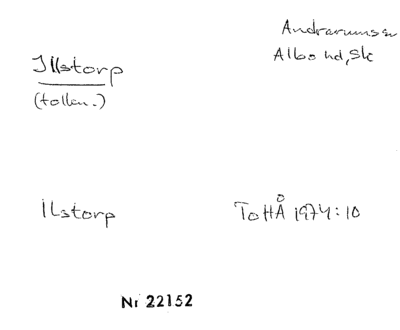 Andrarumssn
Albo hd, Sk
Illstorp
(tolkn.)
Ilstorp
ToHÅ 1974:10
Nr 22152